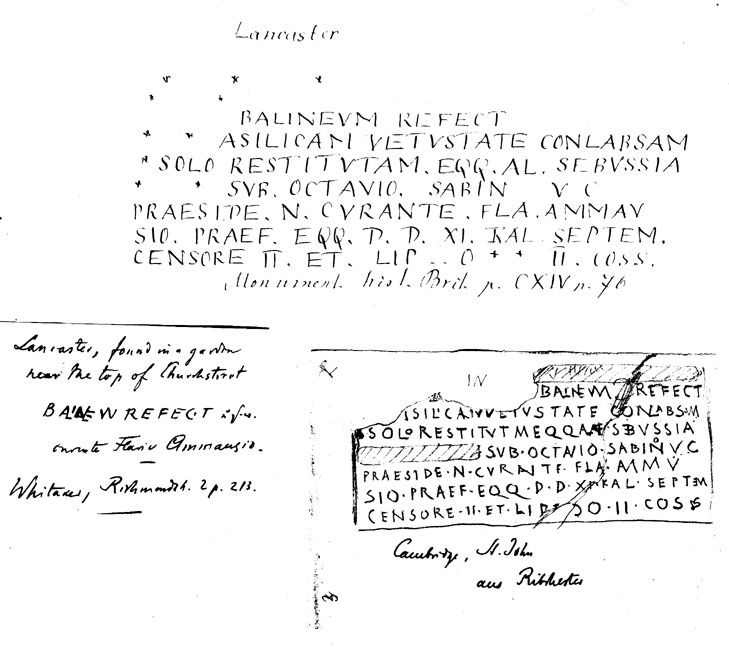 Lancaster
BALINEVM REFECT
ASILICAM VETVSTATE CONLABSAM
SOLO RESTITVTAM. EQQ. AL. SEBVSSIA
SVB. OCTAVIO. SABIN V C
PRAESIDE. N. CVRANTE. FLA. AMMAV
SIO. PRAEF. EQQ. D. D. XI. KAL. SEPTEM.
CENSORE II. ET. LIP .. O * * II. COSS.
Monument. hist. Brit. p. CXIV n. 76
Lancaster, found in a garden
near the top of Churchstreet
BALNEVM REFECT
curante Flavio Ammausio.
Whitaker, Richmondsh. 2 p. 213.
IN
BALNEVM REFECT
ISILICAM VETVSTATE CONLABSVM
SOLO RESTITVTM EQQ ALAE SEBVSSIA
SVB · OCTAVIO · SABINO V C
PRAESIDE · N · CVRNTE · FLA · AMMV
SIO · PRAEF · EQQ · D · D · XI KAL · SEPTEM
CENSORE · II · ET · LIP DO · II · COSS
Cambridge, St. John
aus Ribchester